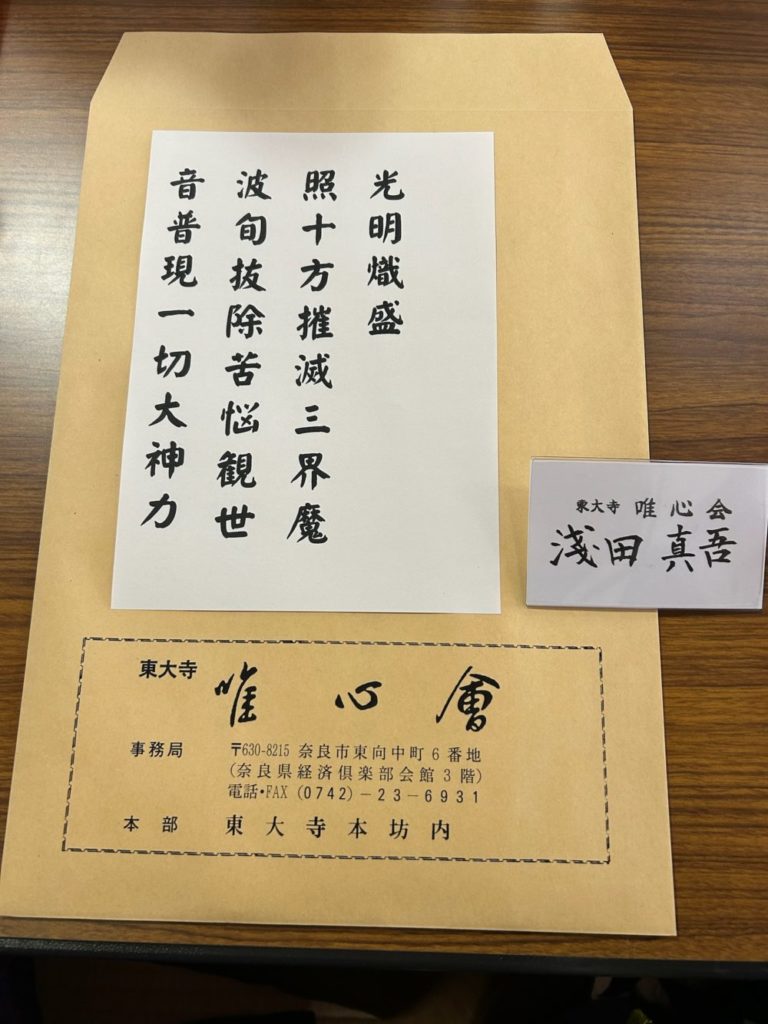 光明熾盛
照十方摧滅三界魔
波旬抜除苦悩観世
音普現一切大神力
東大寺 唯心会
淺田 真吾
東大寺 唯心會
事務局 〒630-8215 奈良市東向中町6番地
(奈良県経済倶楽部会館3階)
電話・FAX (0742)-23-6931
本部 東大寺本坊内